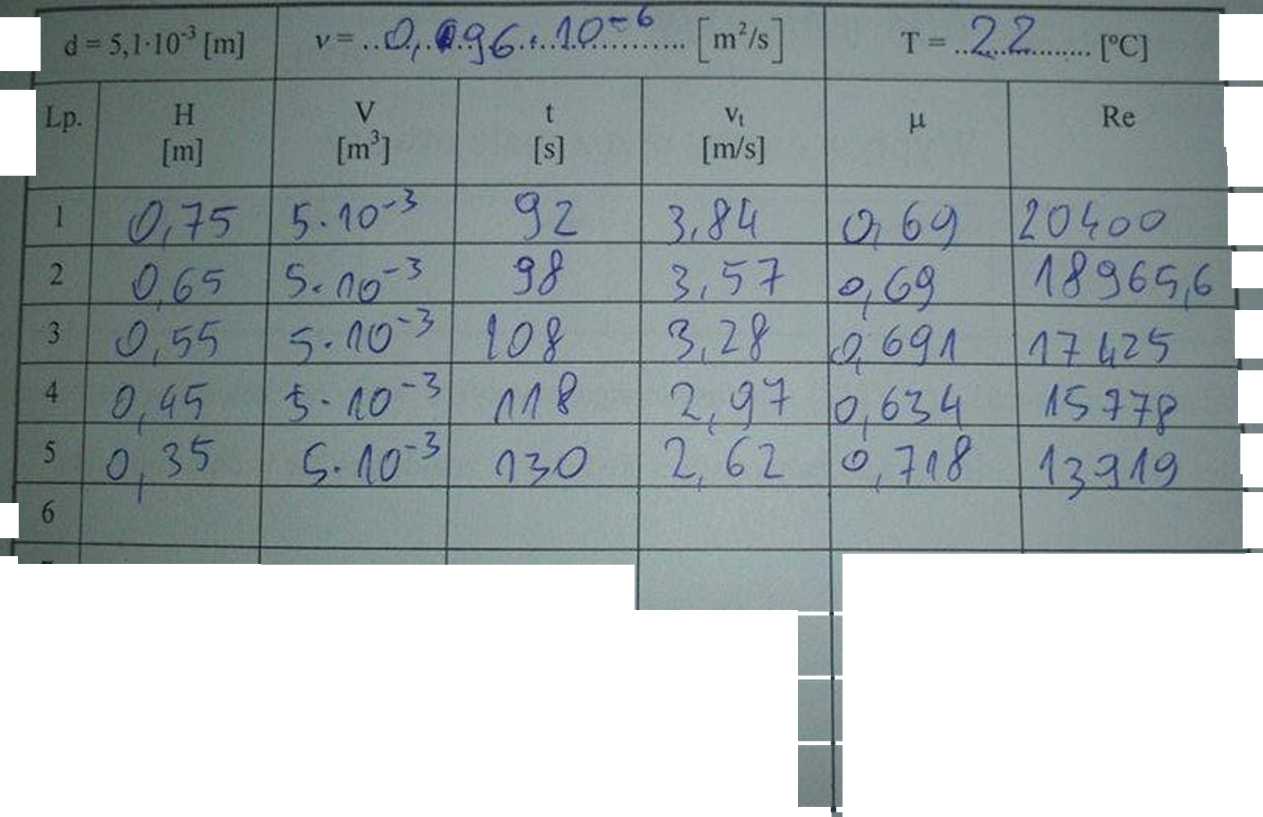 d = 5,1·10⁻³ [m] ν = ..0,96·10⁻⁶.. [m²/s] T = ..22.. [°C]
Lp. H V t vₜ μ Re
[m] [m³] [s] [m/s]
1 0,75 5·10⁻³ 92 3,84 0,69 20400
2 0,65 5·10⁻³ 98 3,57 0,69 18965,6
3 0,55 5·10⁻³ 108 3,28 0,691 17425
4 0,45 5·10⁻³ 118 2,97 0,634 15778
5 0,35 5·10⁻³ 130 2,62 0,718 13919
6